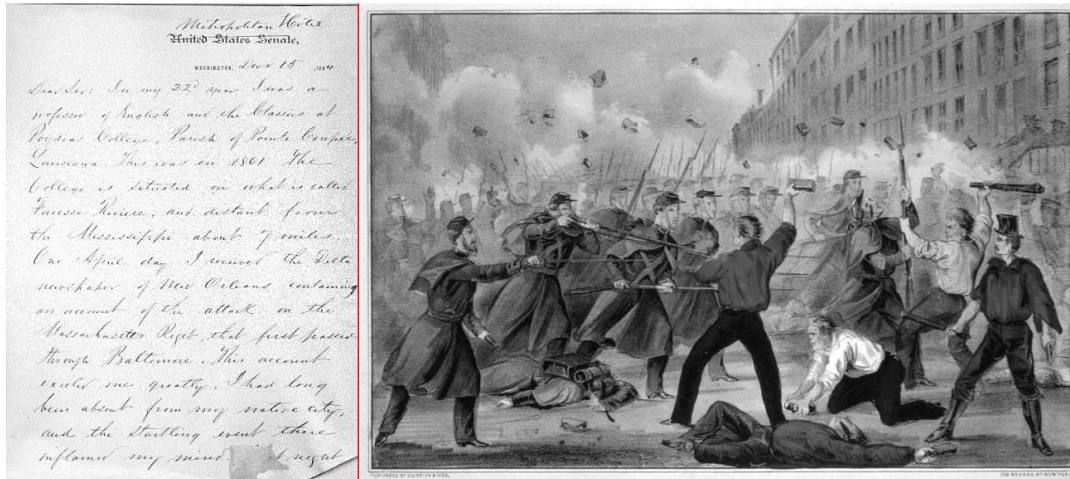 Metropolitan Hotel
United States Senate,
WASHINGTON, Dec 15, 1884
Dear Sir: In my 22d year I was a
professor of English and the Classics at
Poydras College, Parish of Pointe Coupee,
Louisiana. This was in 1861. The
College is situated on what is called
Fausse Riviere, and distant from
the Mississippi about 7 miles.
One April day I received the Delta
newspaper of New Orleans, containing
an account of the attack on the
Massachusetts Regt. that first passed
through Baltimore. This account
excited me greatly. I had long
been absent from my native city,
and the startling event there
inflamed my mind. night
PUBLISHED BY CURRIER & IVES,
152 NASSAU ST. NEW YORK